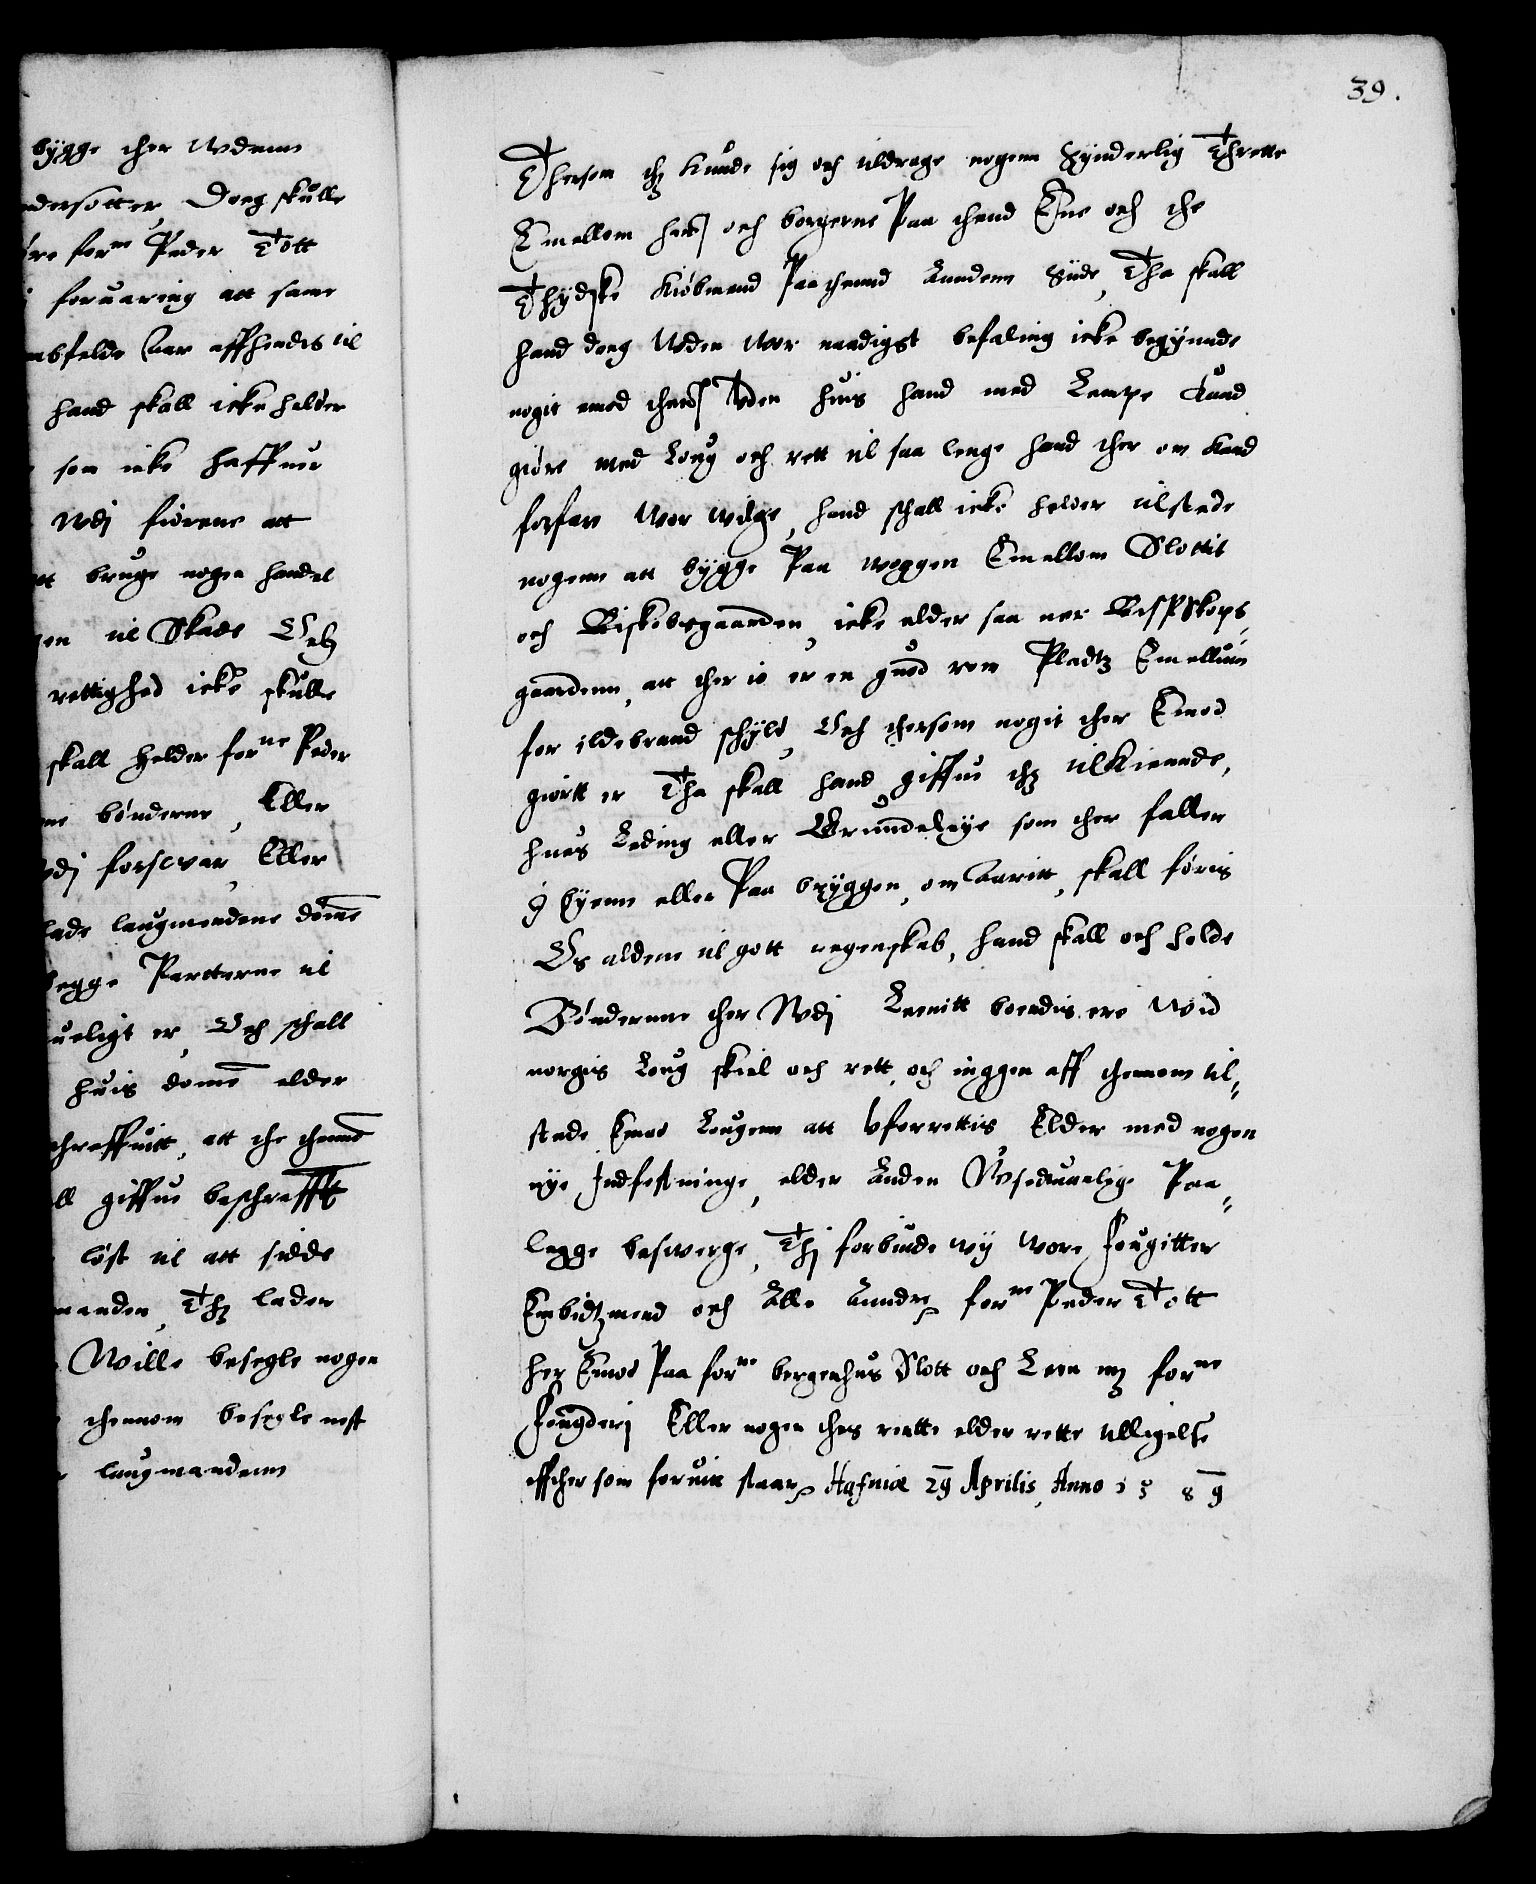 bygge ther Wdenn
ndersotter, Dog skulle
forne Peder Tott
foruaring att same
feldo Aar affhendis til
hand skall icke heller
som icke haffuer
Wdj fiorene att
att bruge nogen handel
til Skade Och
rettighed icke skulle
skall helder forne Peder
bønderne, Eller
forsvar, Eller
lade laugmendene døme
begge Partterne til
ueligt er, Och schall
huis dome elder
threffuitt, att the thenne
giffue beschrefft
løst til att sidde
manden, Thz lader
Wille besegle nogen
thennom besegle mest
laugmandenn
39.
Thersom thz kunde sig och tildrage nogenn Synderlig Thrette
Emellom hans och borgerne Paa thend Ene och the
Thydske Kiøbmend Paa thennd Anndenn Siide, Tha skall
hand dog Uden wor naadigst befaling icke begynnde
nogit emod thens Uden huis hand med Lempe Kand
giøre med Loug och rett til saa lenge hand ther om kand
forfare Wor wilge, hand schall icke helder tilstede
nogenn att bygge Paa woggen Emellom Slottit
och Biskobsgaarden, icke elder saa ner Bispskops¬
gaardenn, att ther io er en guod rom Pladtz Emellum
for ildebrand schyld, Och thersom nogit ther Emod
giørtt er Tha skall hand giffue thz tilKiennde,
hues Leding eller Grundeleye som ther faller
y Byenn eller Paa bryggen, om Aaritt, skall føris
Os aldene til gott regenskab, hand skall och holde
Bønderne ther Wdj Leenitt boendis ere Wid
norgis Loug skiel och rett, och inggen aff thennom til¬
stede Emod Lougenn att vforrettis, Elder med nogen
nye Indfestninge, elder Anden Usedvanlige Paa¬
legge besuerge, Thj forbiude wy wore Fougitter
Embidtzmend och Alle Anndre forne Peder Tott
her Emod Paa forne bergenhus Slott och Leen mz forne
Fougderj Eller nogen thes rentte elder rette tilligelse
effther som foruitt staar, Hafniæ 29 Aprilis, Anno 1589